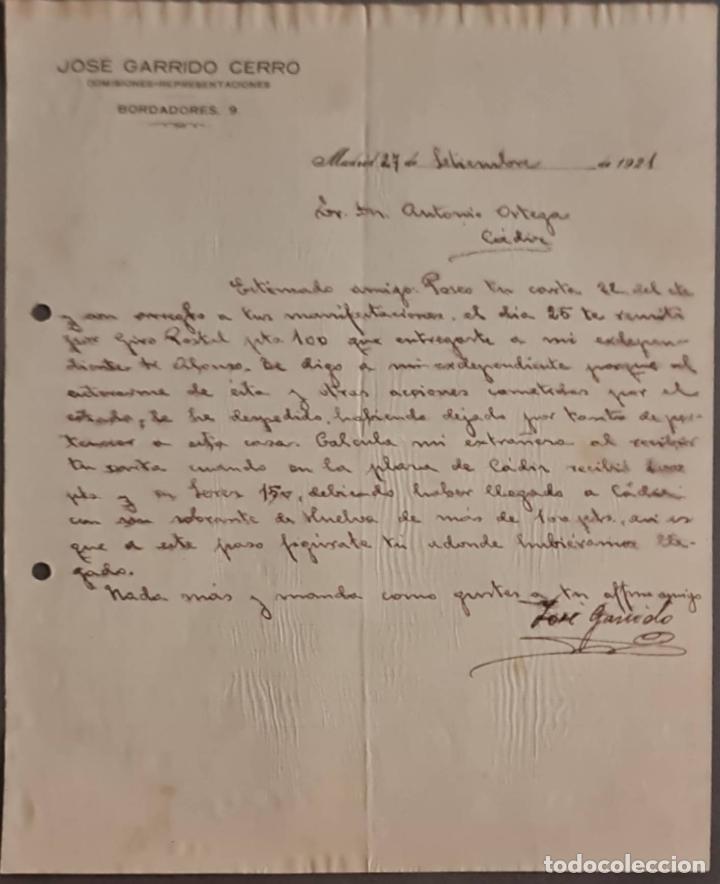 JOSÉ GARRIDO CERRO
COMISIONES-REPRESENTACIONES
BORDADORES, 9
Madrid 27 de Setiembre de 1921
Sr. Dn. Antonio Ortega
Cádiz
Estimado amigo: Poseo tu carta 22 del cte
y con arreglo a tus manifestaciones, el dia 25 te remití
por Giro Postal pts 100 que entregaste a mi exdepen-
diente Alfonso. Te digo a mi exdependiente porque al
enterarme de ésta y otras acciones cometidas por el
citado, le he despedido, habiendo dejado por tanto de per-
tenecer a esta casa. Calcula mi extrañeza al recibir
tu carta cuando en la plaza de Cádiz recibió
pts y en Jerez 150, debiendo haber llegado a Cádiz
con un sobrante de Huelva de más de 100 pts., asi es
que a este paso figúrate tú adonde hubiéramos lle-
gado.
Nada más y manda como gustes a tu affmo amigo
José Garrido
todocoleccion.net